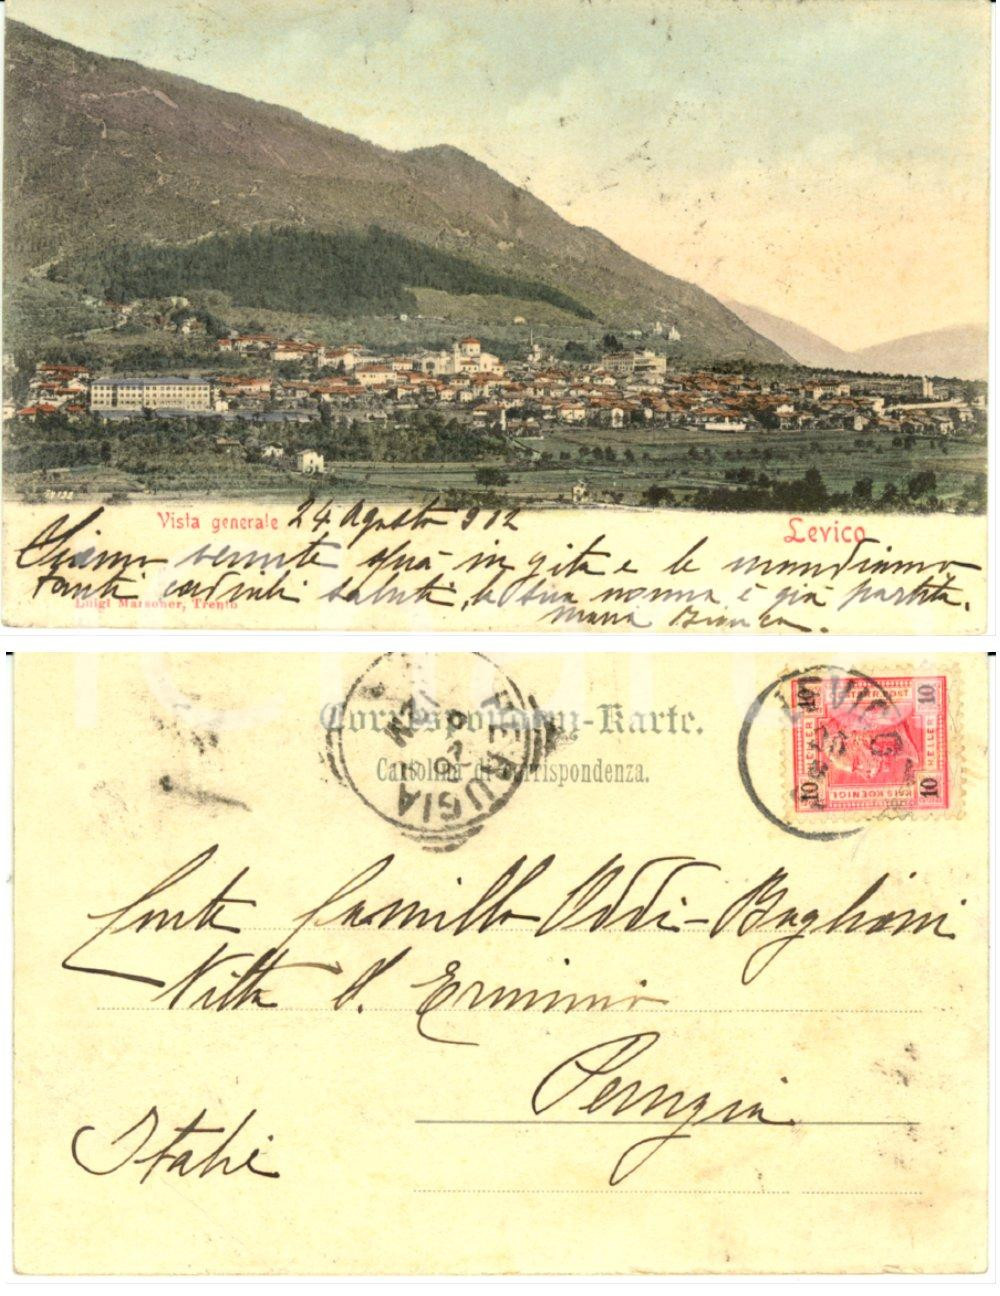 Vista generale 24 Agosto 912 Levico
Siamo venute quà in gita e le mandiamo
tanti cordiali saluti, la sua nonna è già partita.
Luigi Marsoner, Trento
Maria Bianca.
Correspondenz-Karte.
Cartolina di corrispondenza.
PERUGIA
LEVICO
10 10
HELLER HELLER
10 10
KAIS KOENIGL
Conte Camillo Oddi-Baglioni
Villa S. Erminio
Perugia
Italie